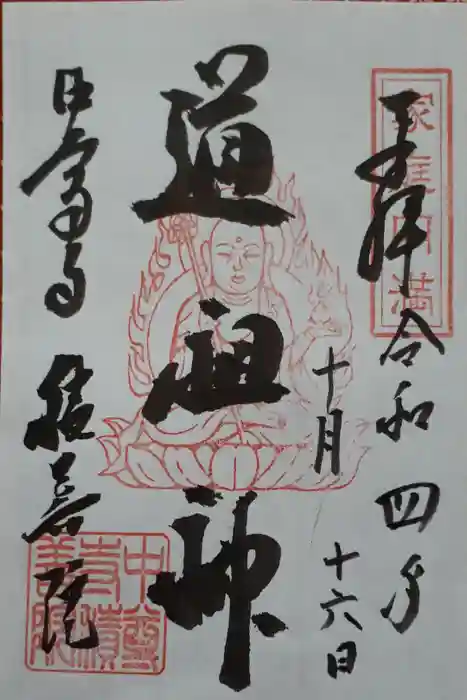 家庭円満
奉拝 令和四年
十月十六日
道祖神
中尊寺 積善院
中尊
寺積
善院